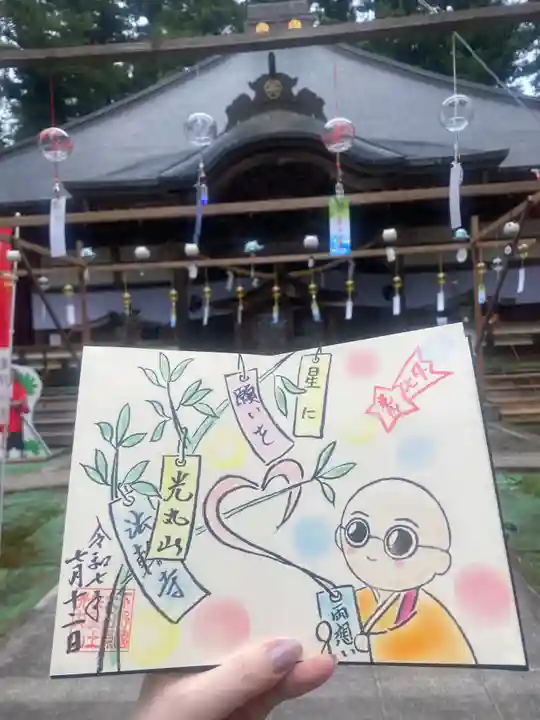 星に
願いを
光丸山
法輪寺
令和七年
七月十二日
両想い